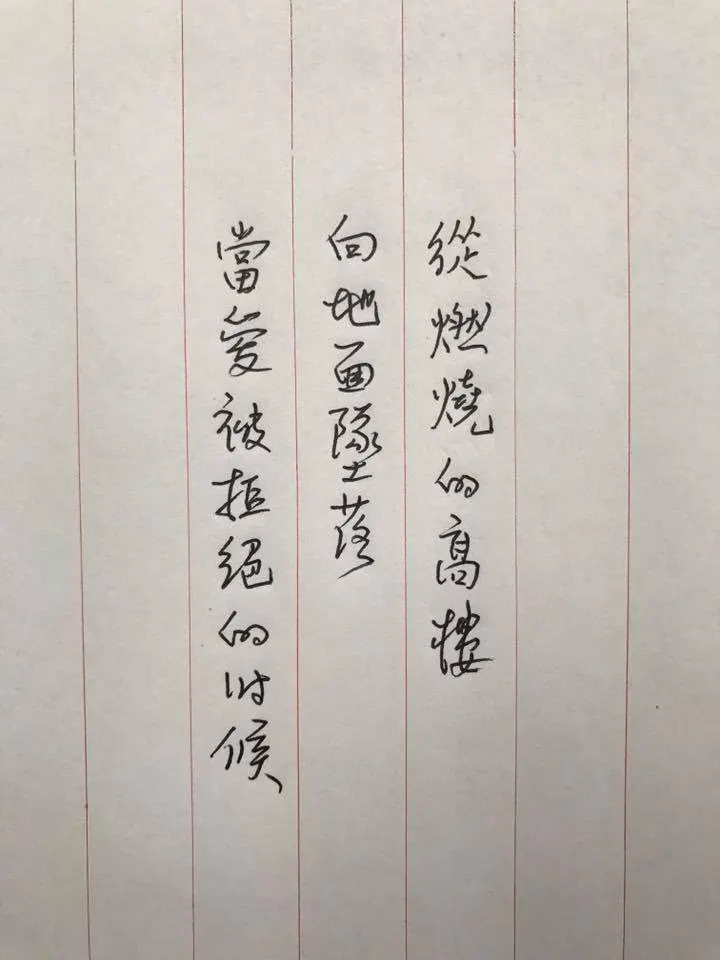 從燃燒的高樓
向地面墜落
當愛被拒絕的时候